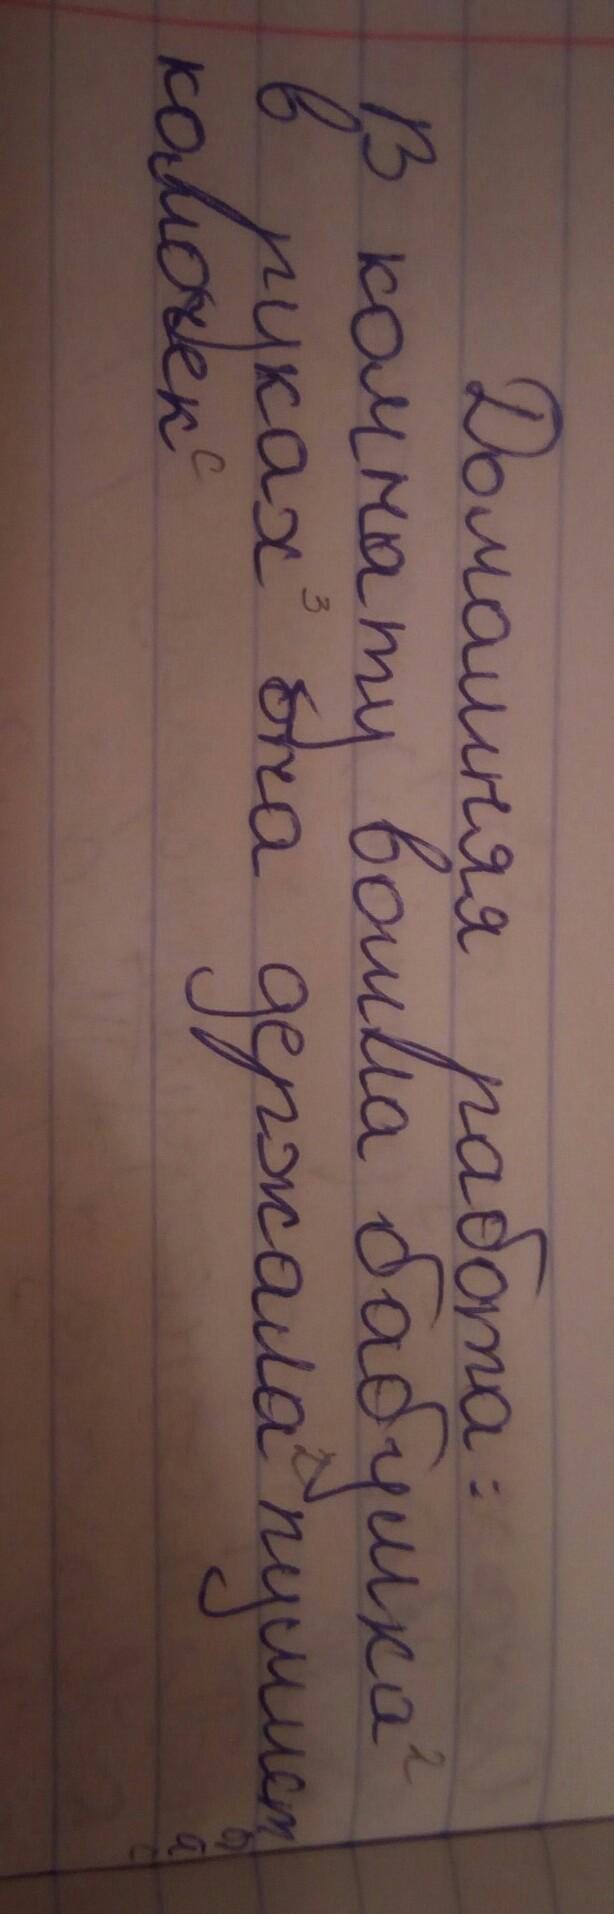 Домашняя работа:
В комнату вошла бабушка²
в руках³ она держала² пушист
комочек с